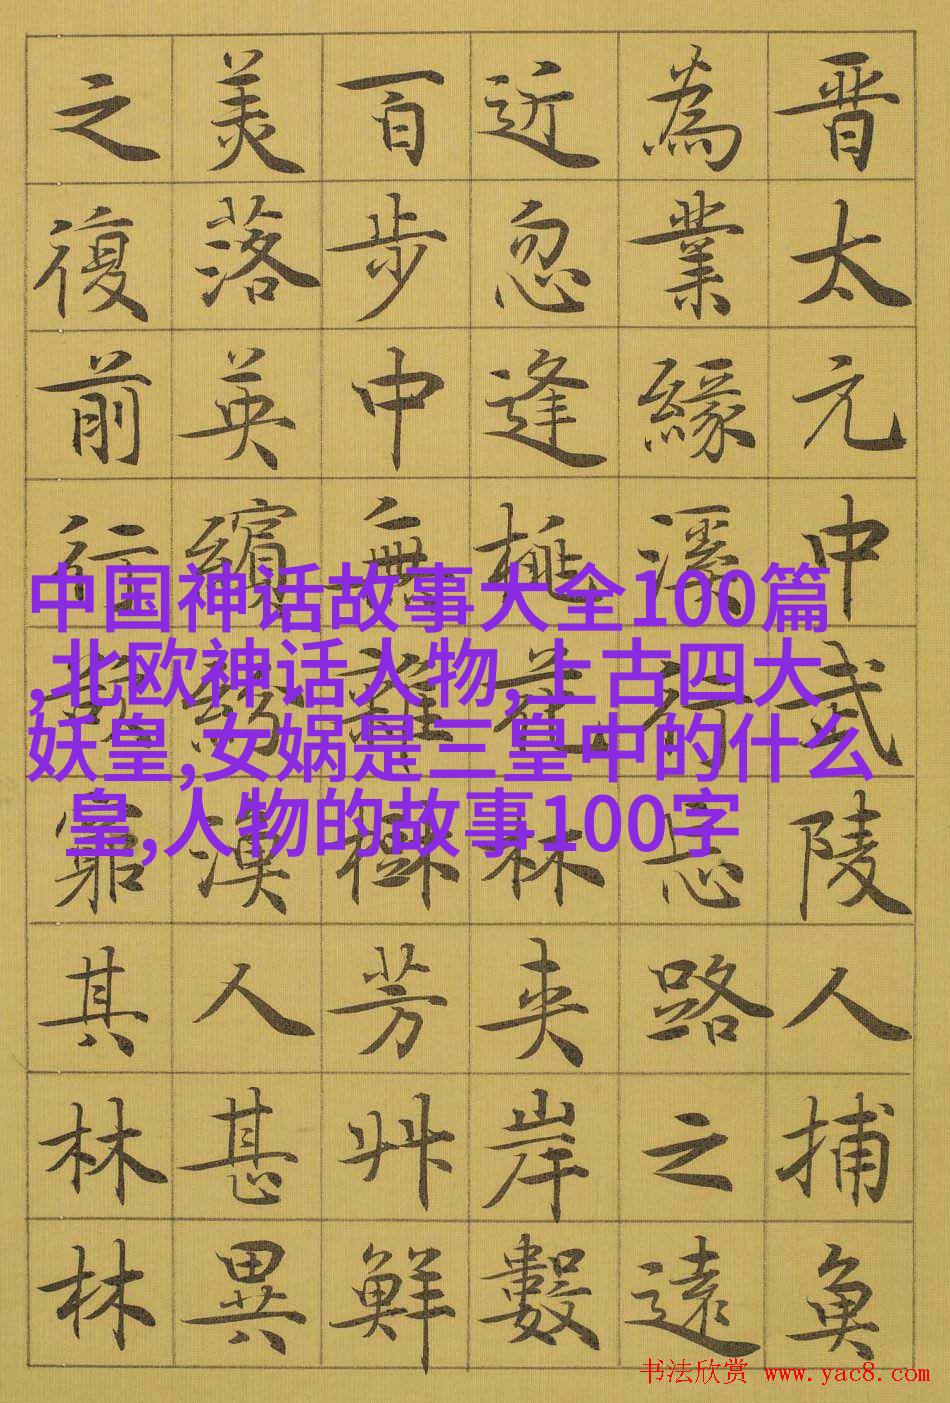 晋太元中武陵人捕魚
為業緣溪行忘路之遠
近忽逢桃花林夾岸數
百步中無雜樹芳艸鮮
美落英繽紛漁人甚異
之復前行欲窮其林林
中国神话故事大全100篇
,北欧神话人物,上古四大
妖皇,女娲是三皇中的什么
皇,人物的故事100字
书法欣赏 www.yac8.com